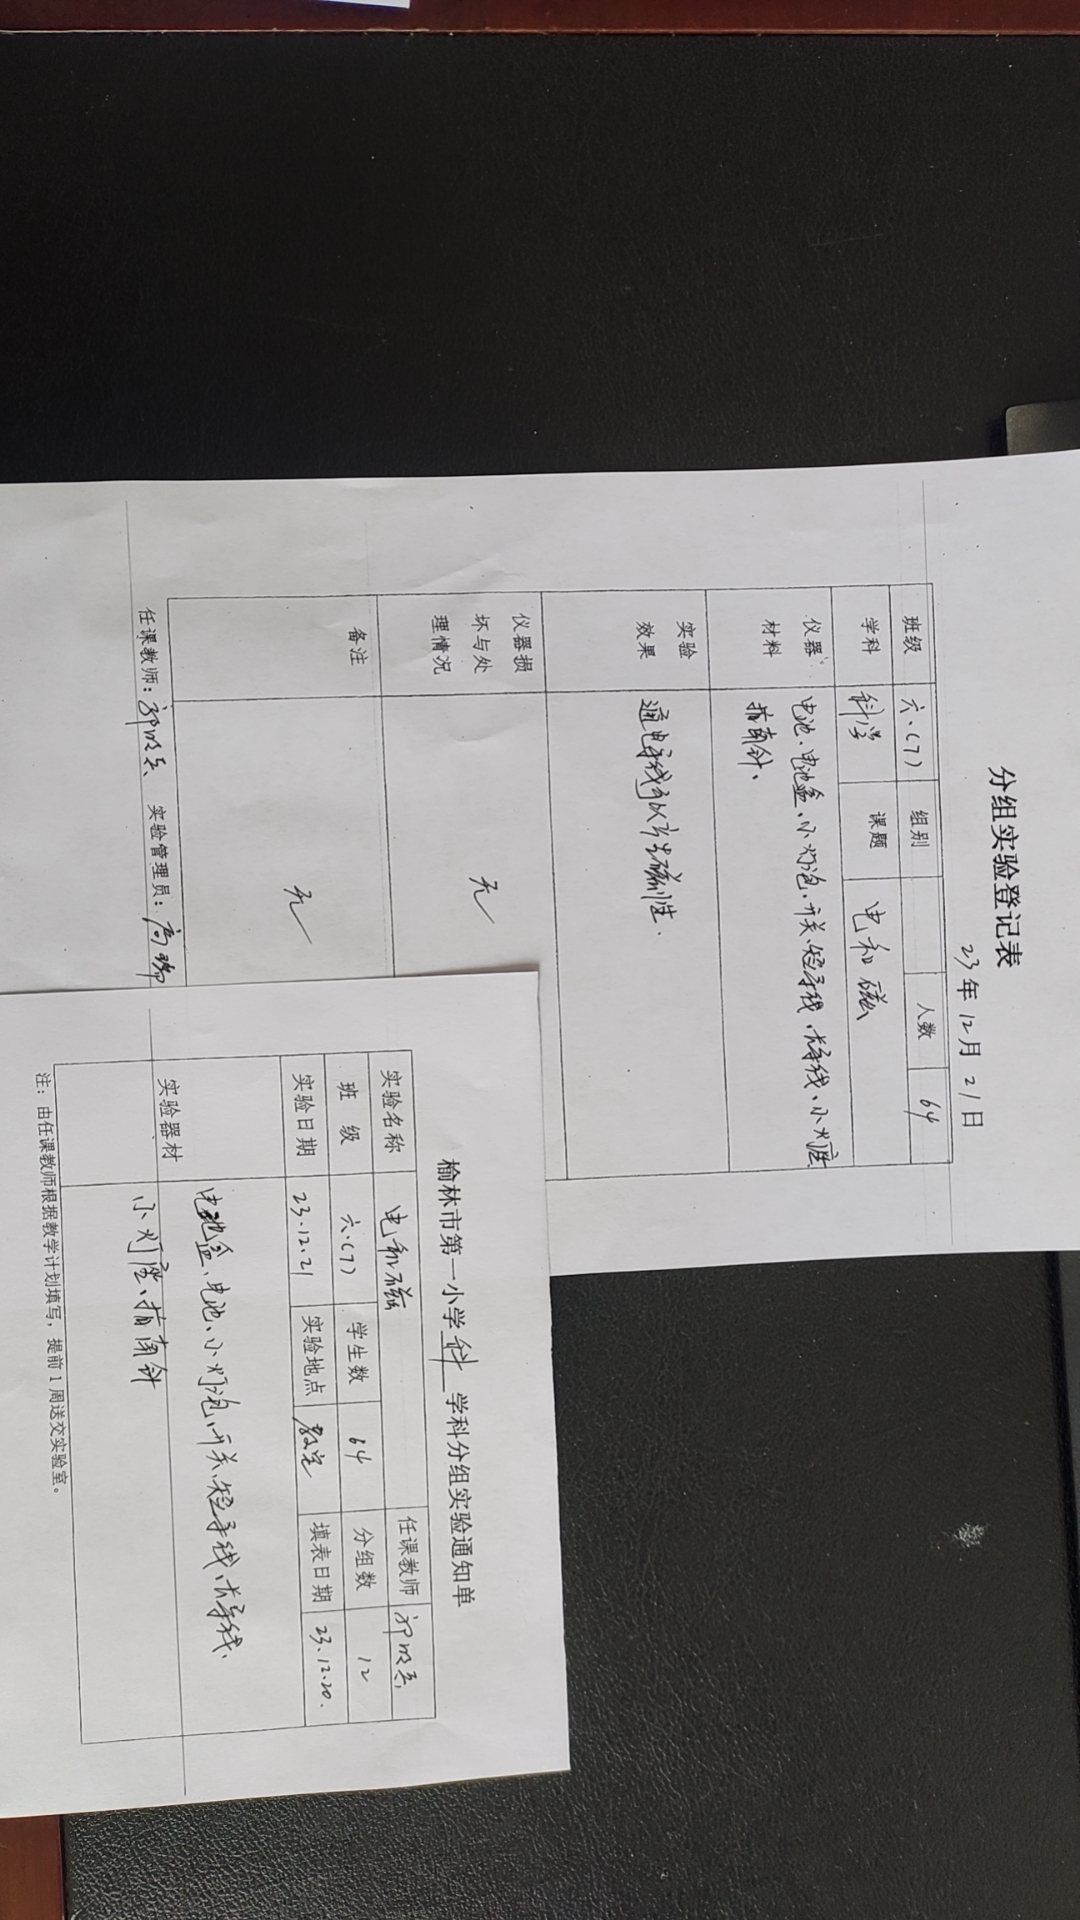 分组实验登记表
23年12月21日
班级 六.(7) 组别 人数 64
学科 科学 课题 电和磁
仪器材料 电池、电池盒、小灯泡、开关、短导线、长导线、小灯座
指南针、
实验效果 通电导线可以产生磁性.
仪器损坏与处理情况 无
备注 无
任课教师: 实验管理员: 高瑞
榆林市第一小学科学科分组实验通知单
实验名称 电和磁 任课教师
班级 六.(7) 学生数 64 分组数 12
实验日期 23.12.21 实验地点 教室 填表日期 23.12.20.
实验器材 电池盒、电池、小灯泡、开关、短导线、长导线、
小灯座、指南针
注：由任课教师根据教学计划填写，提前1周送交实验室。